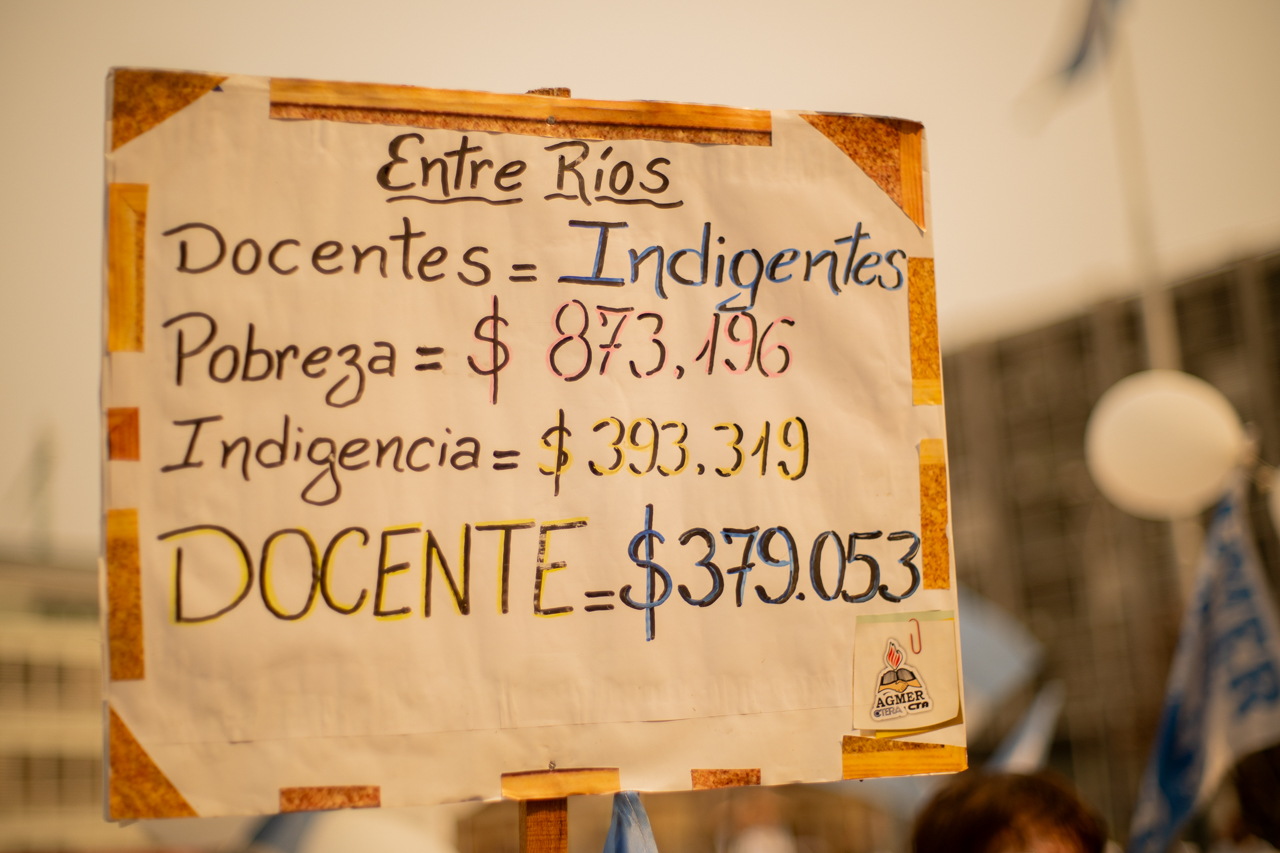 Entre Ríos
Docentes = Indigentes
Pobreza = $ 873.196
Indigencia = $ 393.319
DOCENTE = $379.053
AGMER
CTERA CTA